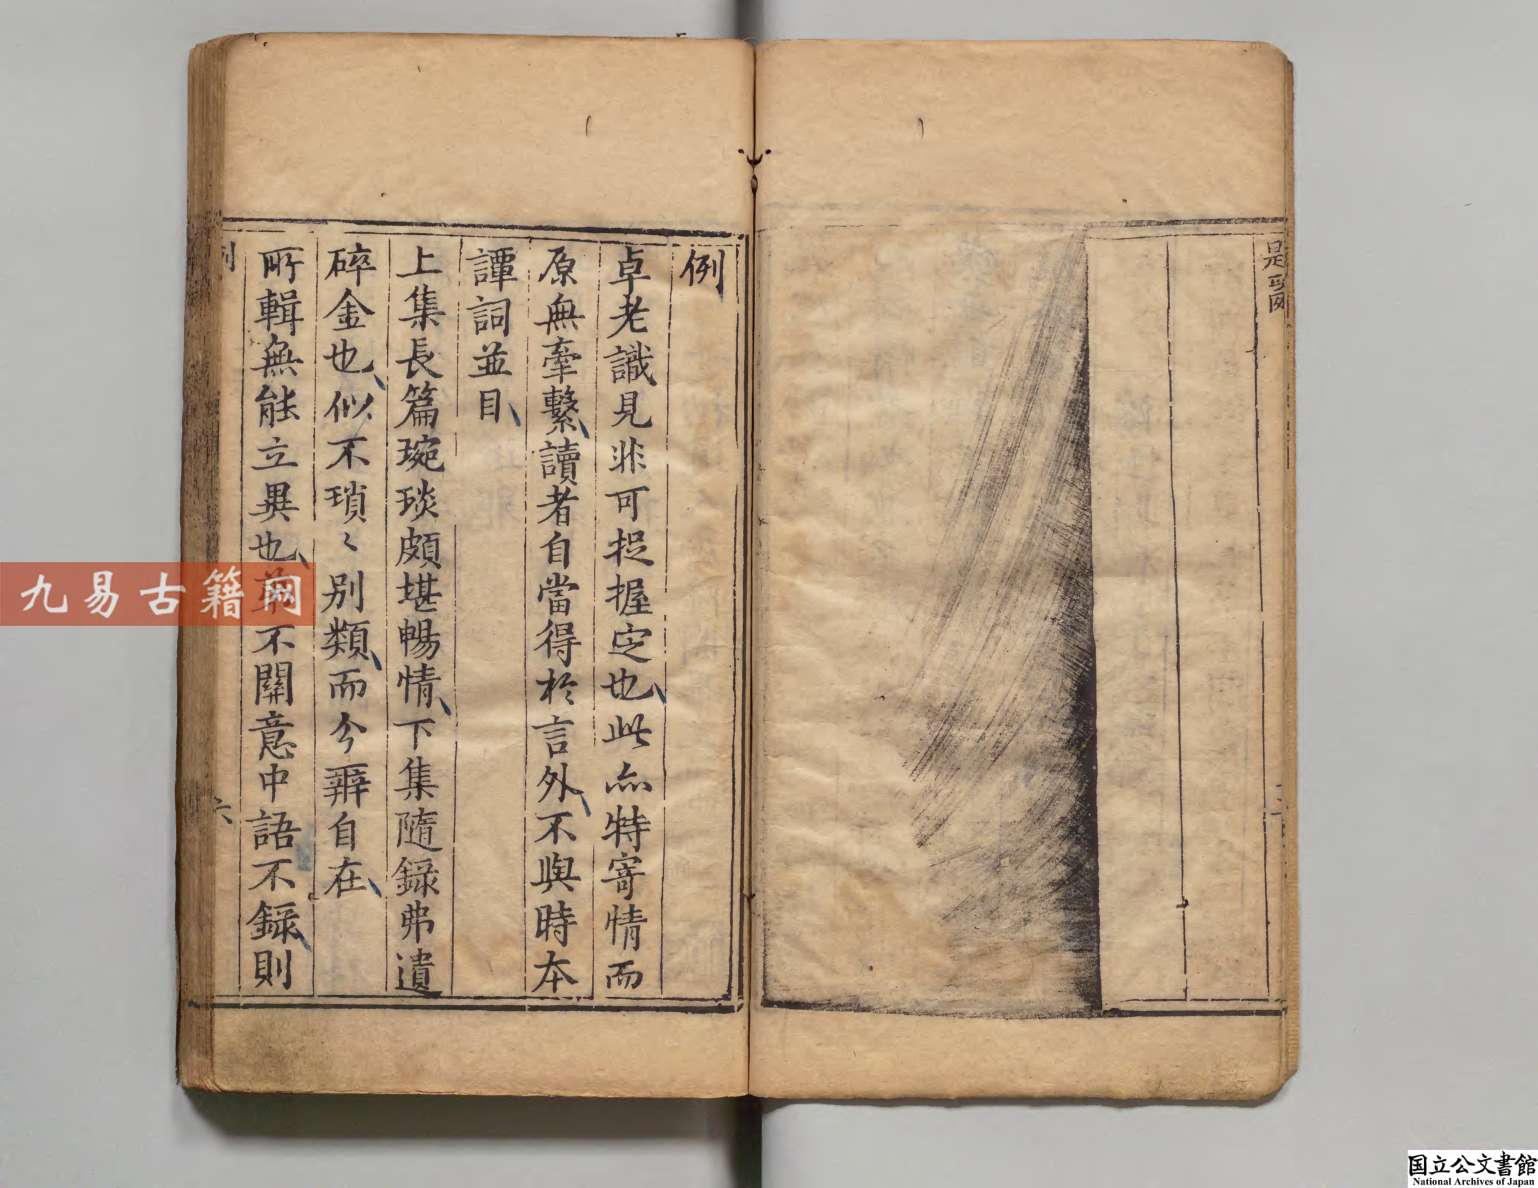 例
卓老識見非可捉握定也此亦特寄情而
原無牽繫讀者自當得於言外不與時本
譚詞並目
上集長篇琬琰頗堪暢情下集隨錄弗遺
碎金也似不瑣〻別類而今辨自在
所輯無能立異也 不關意中語不錄則
例
六
九易古籍网
国立公文書館
National Archives of Japan